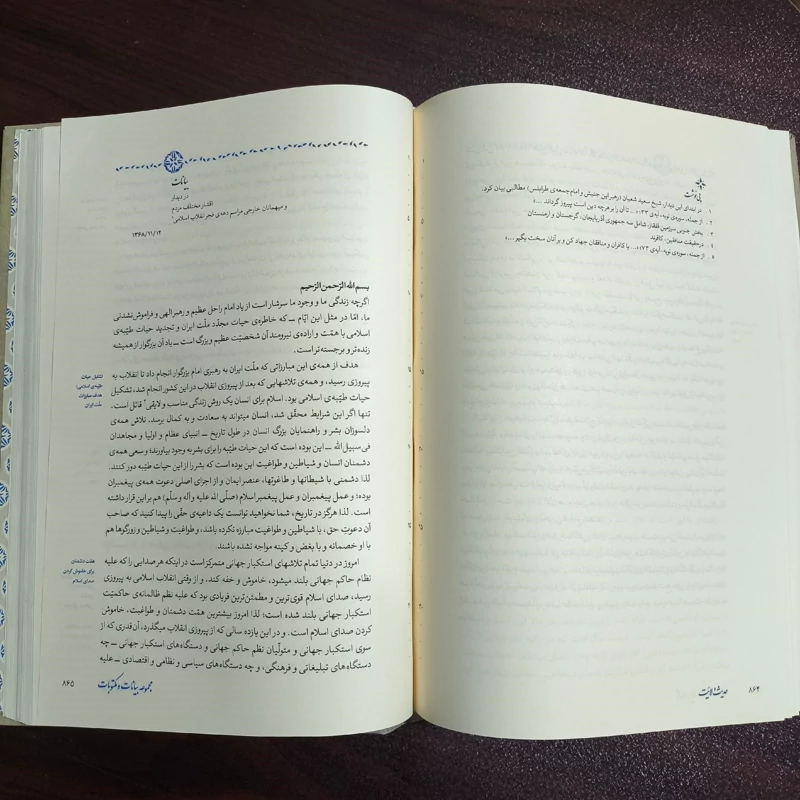 پی‌نوشت
۱. در ابتدای این دیدار، شیخ سعید شعبان (رهبر این جنبش و امام جمعه‌ی طرابلس) مطالبی بیان کرد.
۲. از جمله، سوره‌ی توبه، آیه‌ی ۳۳؛ «... تا آن را بر هرچه دین است پیروز گرداند ...»
۳. بخش جنوبی سرزمین قفقاز، شامل سه جمهوری آذربایجان، گرجستان و ارمنستان
۴. درحقیقت منافقین، کافرند
۵. از جمله، سوره‌ی توبه، آیه‌ی ۷۳؛ «... با کافران و منافقان جهاد کن و بر آنان سخت بگیر ...»
حدیث ولایت
۸۶۴
بیانات
در دیدار
اقشار مختلف مردم
و میهمانان خارجی مراسم دهه‌ی فجر انقلاب اسلامی۱
۱۳۶۸/۱۱/۱۲
بسم الله الرّحمن الرّحیم
اگرچه زندگی ما و وجود ما سرشار است از یاد امام راحل عظیم و رهبر الهی و فراموش‌نشدنی
ما، امّا در مثل این ایّام ــ که خاطره‌ی حیات مجدّد ملّت ایران و تجدید حیات طیّبه‌ی
اسلامی با همّت و اراده‌ی نیرومند آن شخصیّت عظیم و بزرگ است ــ یاد آن بزرگوار از همیشه
زنده‌تر و برجسته‌تر است.
هدف از همه‌ی این مبارزاتی که ملّت ایران به رهبری امام بزرگوار انجام داد تا انقلاب به
پیروزی رسید، و همه‌ی تلاشهایی که بعد از پیروزی انقلاب در این کشور انجام شد، تشکیل
حیات طیّبه‌ی اسلامی بود. اسلام برای انسان یک روش زندگی مناسب و لایقی۲ قائل است.
تنها اگر این شرایط محقّق شد، انسان میتواند به سعادت و به کمال برسد. تلاش همه‌ی
دلسوزان بشر و راهنمایان بزرگ انسان در طول تاریخ ــ انبیای عظام و اولیا و مجاهدان
فی‌سبیل‌الله ــ این بوده است که این حیات طیّبه را برای بشر به وجود بیاورند؛ و سعی همه‌ی
دشمنان انسان و شیاطین و طواغیت این بوده است که بشر را از این حیات طیّبه دور کنند.
لذا دشمنی با شیطانها و طاغوتها، عنصر ایمان و از اجزای اصلی دعوت همه‌ی پیغمبران
بوده؛ و عمل پیغمبران و عمل پیغمبر اسلام (صلّی الله علیه و آله و سلّم) هم بر این قرار داشته
است. لذا هرگز در تاریخ، شما نخواهید توانست یک داعیه‌ی حقّی را پیدا کنید که صاحب
آن دعوتِ حق، با شیاطین و طواغیت مبارزه نکرده باشد، و طواغیت و شیاطین و زورگوها هم
با او خصمانه و با بغض و کینه مواجه نشده باشند.
امروز در دنیا تمام تلاشهای استکبار جهانی متمرکز است در اینکه هر صدایی را که علیه
نظام حاکم جهانی بلند میشود، خاموش و خفه کند. و از وقتی انقلاب اسلامی به پیروزی
رسید، صدای اسلام قوی‌ترین و مطمئن‌ترین فریادی بود که علیه نظم ظالمانه‌ی حاکمیّت
استکبار جهانی بلند شده است؛ لذا امروز بیشترین همّت دشمنان و طواغیت، خاموش
کردن صدای اسلام است. و در این یازده سالی که از پیروزی انقلاب میگذرد، آن‌قدری که از
سوی استکبار جهانی و متولّیان نظم حاکم جهانی و دستگاه‌های استکبار جهانی ــ چه
دستگاه‌های تبلیغاتی و فرهنگی، و چه دستگاه‌های سیاسی و نظامی و اقتصادی ــ علیه
تشکیل حیات
طیّبه‌ی اسلامی؛
هدف مبارزات
ملّت ایران
همّت دشمنان
برای خاموش کردن
صدای اسلام
مجموعه بیانات و مکتوبات
۸۶۵